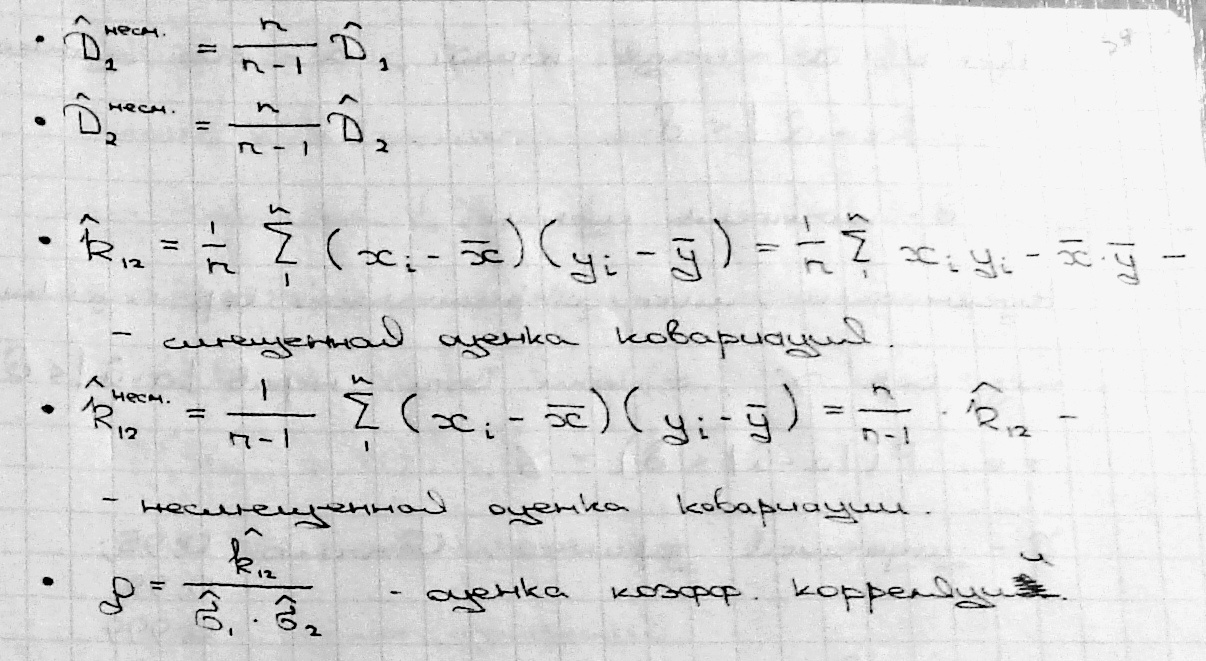 • D̂₁ⁿᵉᶜᵐ· = n/(n-1) D̂₁
• D̂₂ⁿᵉᶜᵐ· = n/(n-1) D̂₂
• k̂₁₂ = 1/n ∑₁ⁿ (xᵢ - x̄)(yᵢ - ȳ) = 1/n ∑₁ⁿ xᵢ yᵢ - x̄·ȳ -
- смещенная оценка ковариаций.
• k̂₁₂ несм. = 1/(n-1) ∑₁ⁿ (xᵢ - x̄)(yᵢ - ȳ) = n/(n-1) · k̂₁₂ -
- несмещенная оценка ковариации.
• ρ = k̂₁₂ / (σ̂₁ · σ̂₂) - оценка коэфф. корреляции.